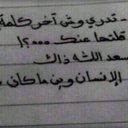 - تدري وش آخر كلمة
قلتها عنك ....؟!
سعد اللي ذاك
الإنسان وين ما كان .